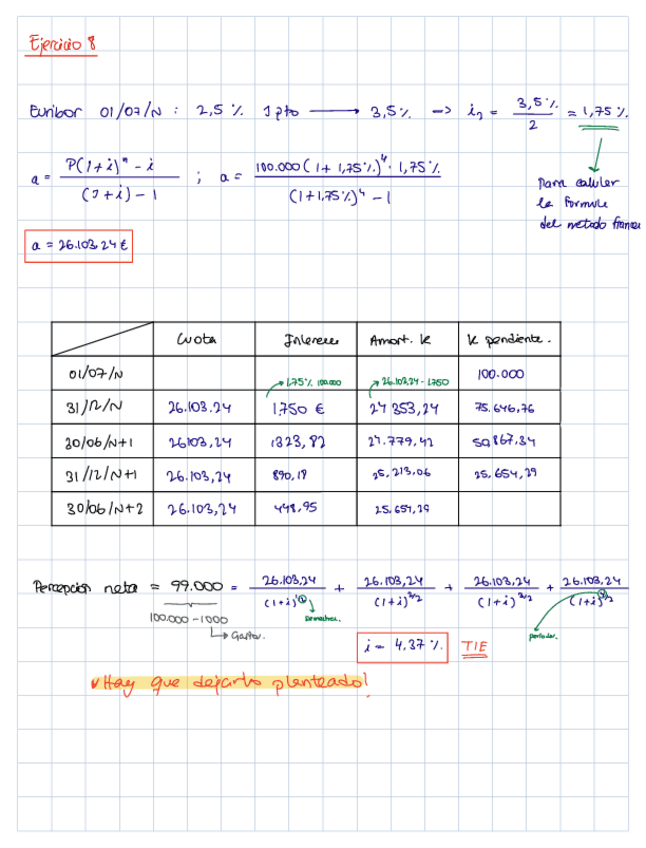 Ejercicio 8
Euribor 01/07/N : 2,5 % 1 pto → 3,5 % → i₂ = 3,5 % / 2 = 1,75 %
a = P(1+i)ⁿ - i / (1+i) - 1 ; a = 100.000 (1 + 1,75 %)⁴ · 1,75 % / (1+1,75 %)⁴ - 1
Para calcular
la formula
del metodo frances
a = 26.103,24 €
Cuota Intereses Amort. K K pendiente.
01/07/N 100.000
→ 1,75 % 100.000 → 26.103,24 - 1750
31/12/N 26.103,24 1750 € 24 353,24 75.646,76
30/06/N+1 26103,24 1323,82 24.779,42 50867,34
31/12/N+1 26.103,24 890,18 25.213,06 25.654,29
30/06/N+2 26.103,24 448,95 25.654,29
Percepcion neta = 99.000 = 26.103,24 / (1+i)^½ + 26.103,24 / (1+i)^2/2 + 26.103,24 / (1+i)^3/2 + 26.103,24
100.000 - 1000
→ Gastos.
periodos.
i = 4,37 % TIE
Hay que dejarlo planteado!